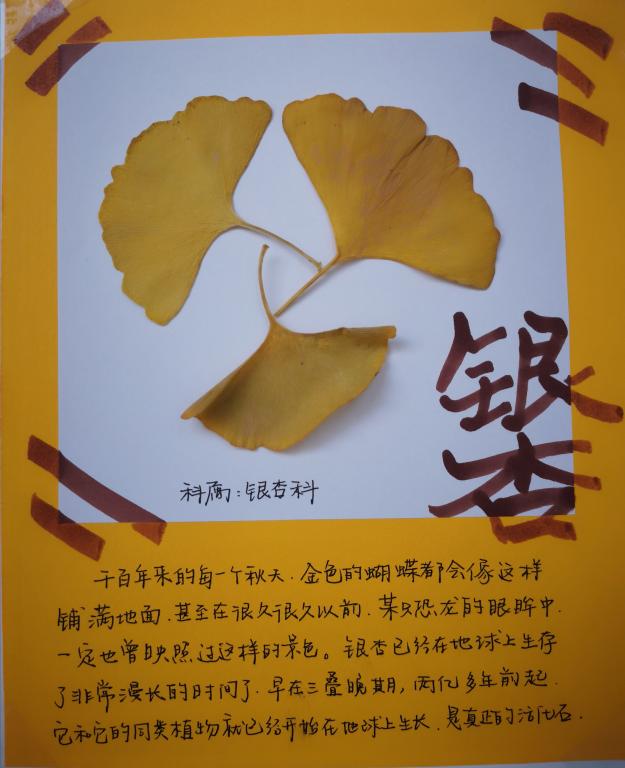 银杏
科属：银杏科
千百年来的每一个秋天．金色的蝴蝶都会像这样
铺满地面．甚至在很久很久以前．某只恐龙的眼眸中．
一定也曾映照过这样的景色。银杏已经在地球上生存
了非常漫长的时间了．早在三叠晚期，两亿多年前起．
它和它的同类植物就已经开始在地球上生长．是真正的活化石．